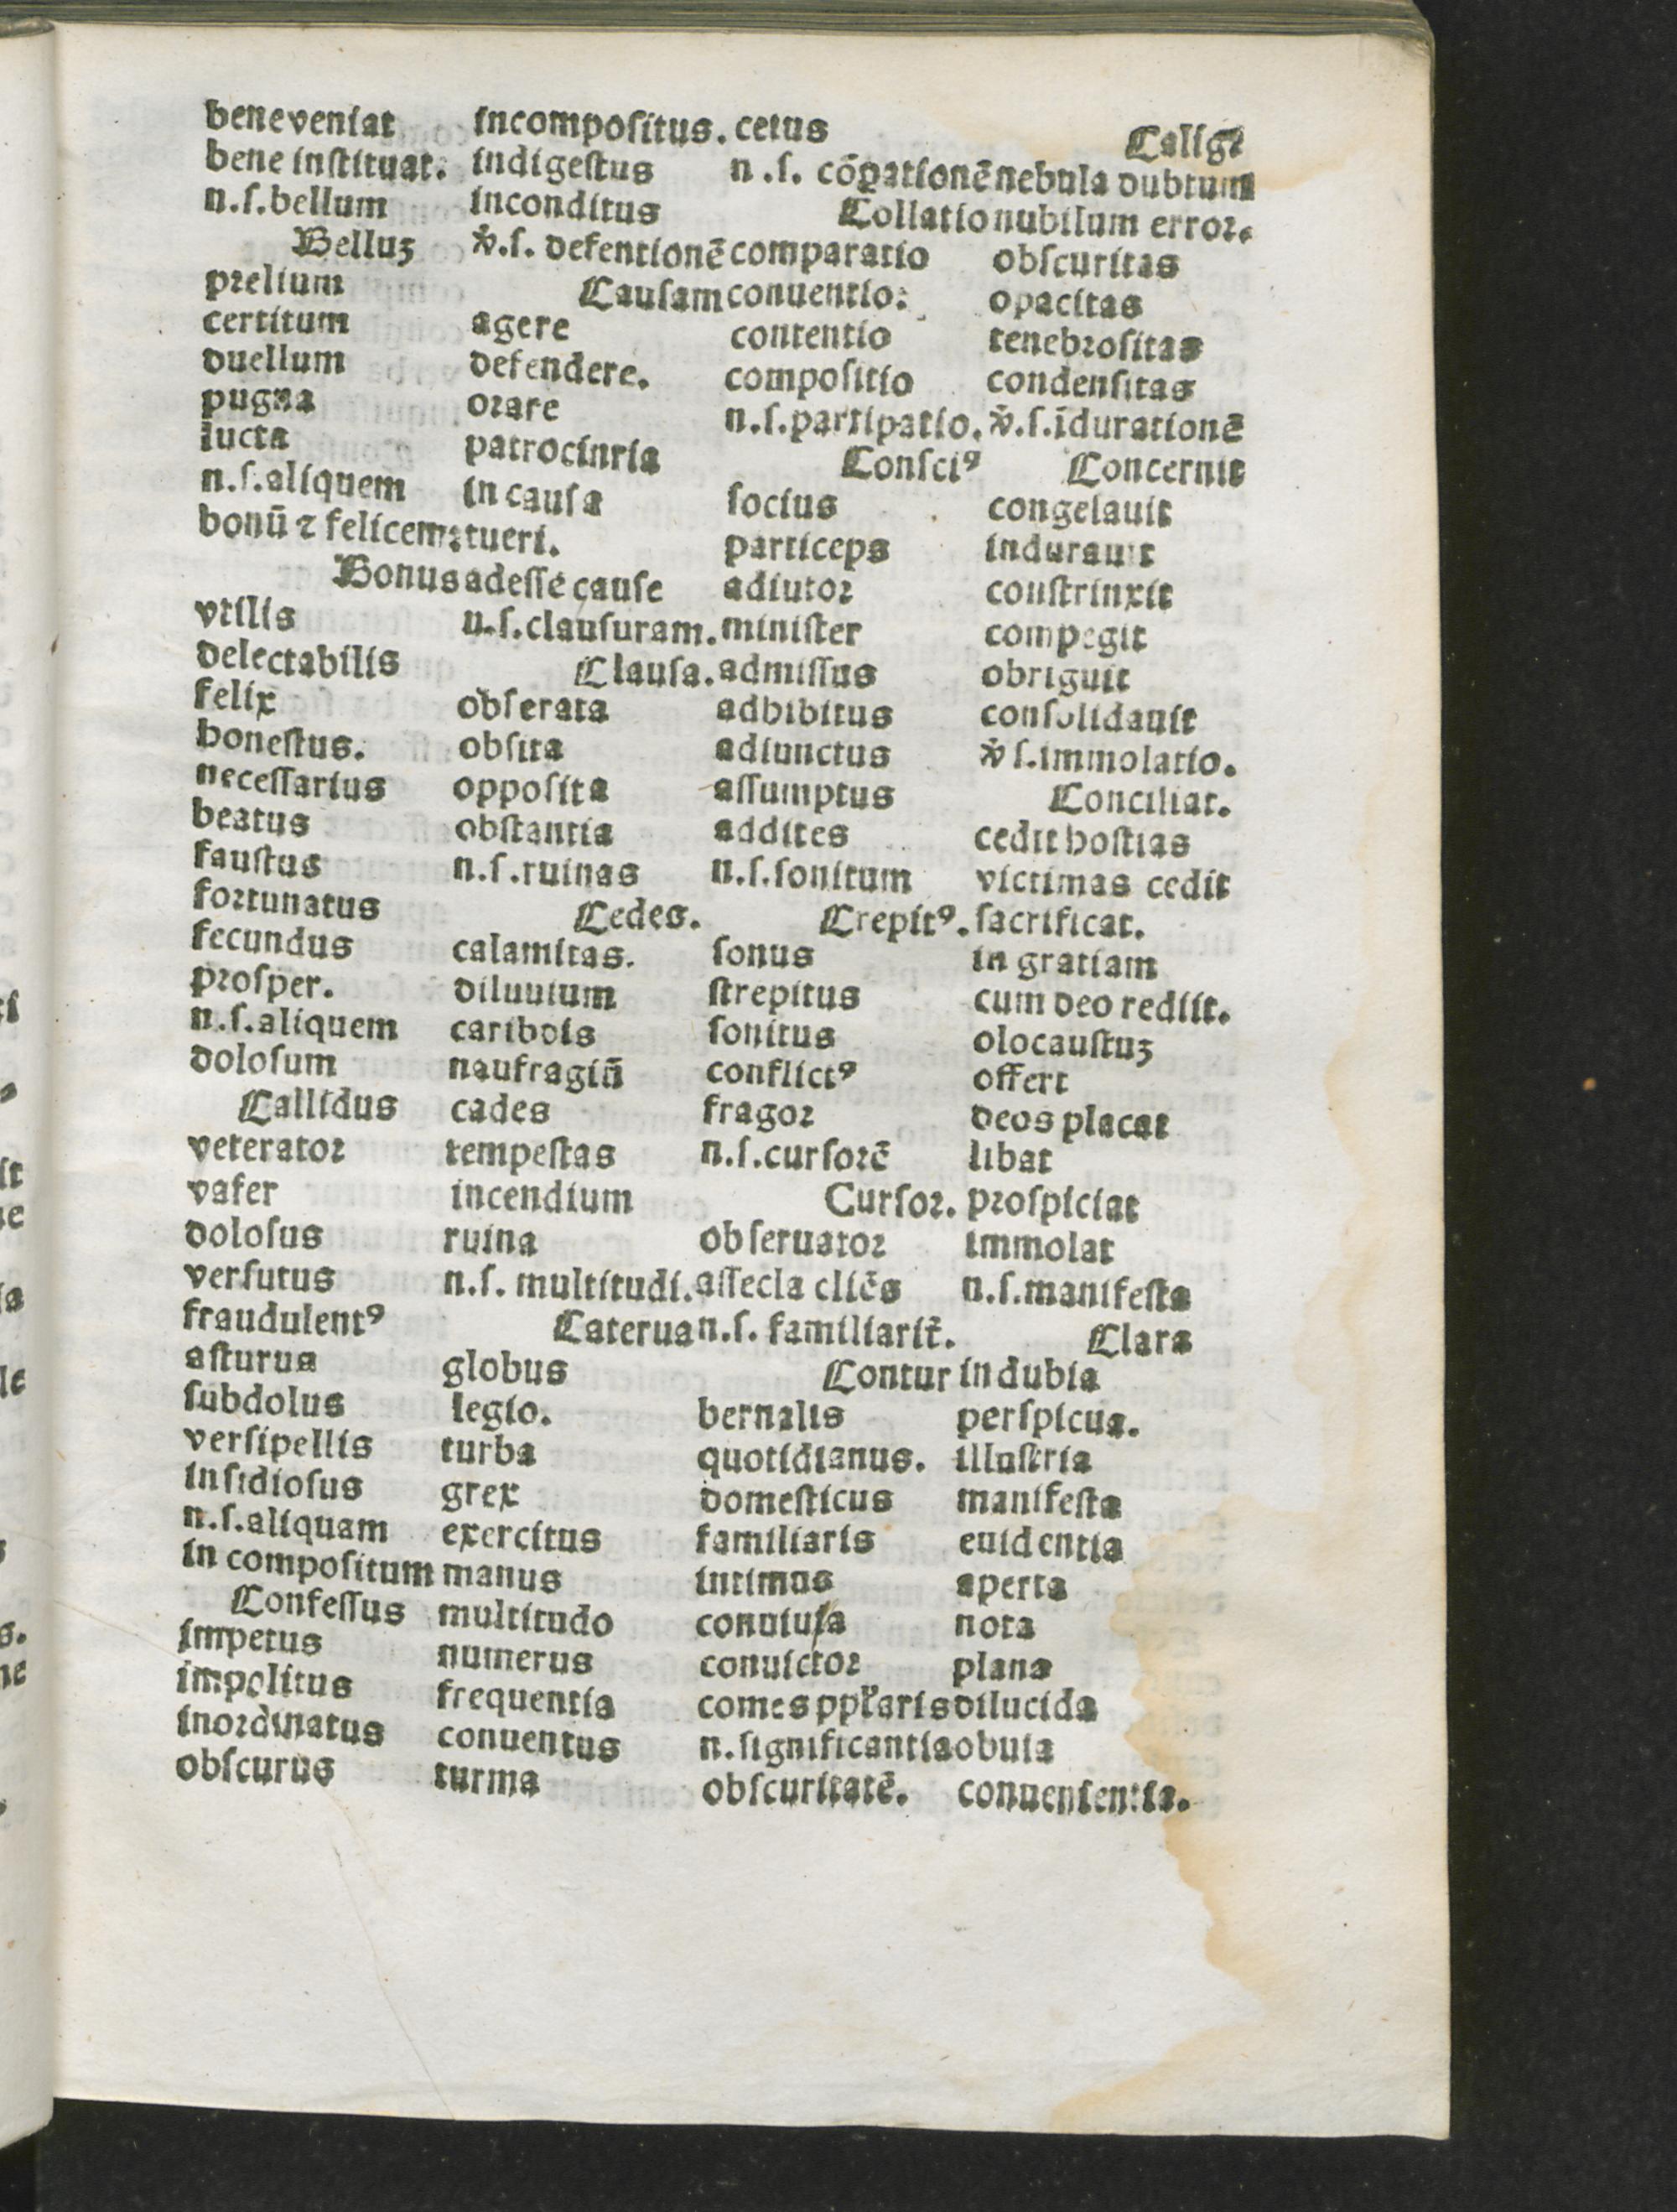 beneveniat
bene inſtituat.
n.ſ.bellum
Belluꝫ
prelium
certitum
duellum
pugna
lucta
n.ſ.aliquem
bonū ⁊ felicem
Bonus
vtilis
delectabilis
felix
honeſtus.
neceſſarius
beatus
fauſtus
fortunatus
fecundus
proſper.
n.ſ.aliquem
doloſum
Callidus
veterator
vafer
doloſus
verſutus
fraudulentꝰ
aſturus
ſubdolus
verſipellis
inſidioſus
n.ſ.aliquam
in compoſitum
Confeſſus
impetus
impolitus
inordinatus
obſcurus
incompoſitus.
indigeſtus
inconditus
v̓.ſ. defentionē
Cauſam
agere
defendere.
orare
patrocinria
in cauſa
tueri.
adeſſe cauſe
n.ſ.clauſuram.
Clauſa.
obſerata
obſita
oppoſita
obſtantia
n.ſ.ruinas
Cedes.
calamitas.
diluuium
caribdis
naufragiū
cades
tempeſtas
incendium
ruina
n.ſ. multitudi.
Caterua
globus
legio.
turba
grex
exercitus
manus
multitudo
numerus
frequentia
conuentus
turma
cetus
n.ſ. cōꝑationē
Collatio
comparatio
conuentio:
contentio
compoſitio
n.ſ.partipatio.
Conſciꝰ
ſocius
particeps
adiutor
miniſter
admiſſus
adhibitus
adiunctus
aſſumptus
addites
n.ſ.ſonitum
Crepitꝰ.
ſonus
ſtrepitus
ſonitus
conflictꝰ
fragor
n.ſ.curſorē
Curſor.
obſeruator
aſſecla cliēs
n.ſ. familiarit̄.
Contur
bernalis
quotidianus.
domeſticus
familiaris
intimus
conuiuia
conuictor
comes ppl̓aris
n.ſignificantia
obſcuritatē.
Caligꝛ
nebula dubium
nubilum error.
obſcuritas
opacitas
tenebroſitas
condenſitas
v̓.ſ.īdurationē
Concernit
congelauit
indurauit
conſtrinxit
compegit
obriguit
conſolidauit
v̓ ſ.immolatio.
Conciliat.
cedit hoſtias
victimas cedit
ſacrificat.
in gratiam
cum deo rediit.
olocauſtuꝫ
offert
deos placat
libat
proſpiciat
immolat
n.ſ.manifeſta
Clara
in dubia
perſpicua.
illuſtria
manifeſta
euidentia
aperta
nota
plana
dilucida
obuia
conuenientia.